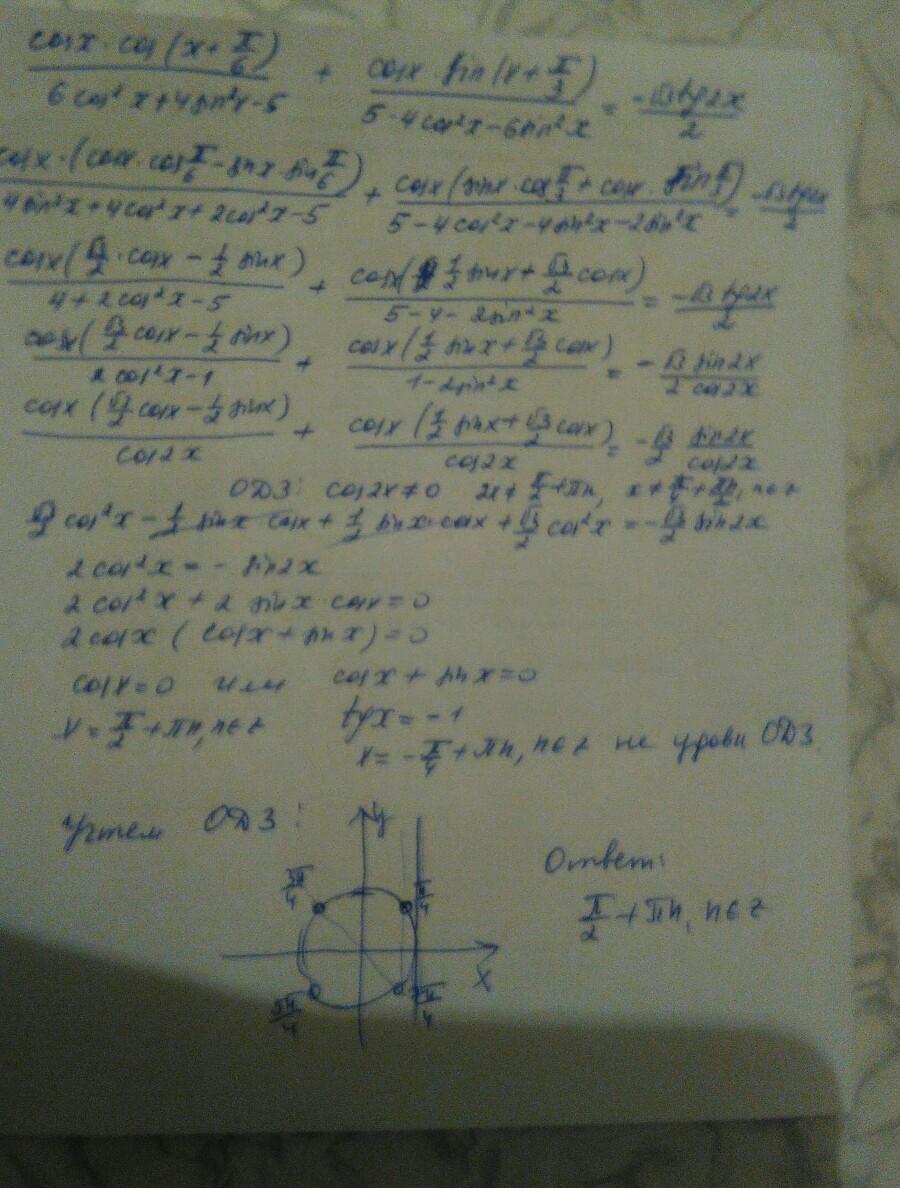 cosx·cos(x+π/6)/(6cos²x+4sin²x-5) + cosx·sin(x+π/3)/(5-4cos²x-6sin²x) = -√3tg2x/2
cosx·(cosx·cosπ/6-sinx·sinπ/6)/(4sin²x+4cos²x+2cos²x-5) + cosx(sinx·cosπ/3+cosx·sinπ/3)/(5-4cos²x-4sin²x-2sin²x) = -√3tg2x/2
cosx(√3/2·cosx-1/2sinx)/(4+2cos²x-5) + cosx(1/2sinx+√3/2cosx)/(5-4-2sin²x) = -√3tg2x/2
cosx(√3/2cosx-1/2sinx)/(2cos²x-1) + cosx(1/2sinx+√3/2cosx)/(1-2sin²x) = -√3sin2x/(2cos2x)
cosx(√3/2cosx-1/2sinx)/cos2x + cosx(1/2sinx+√3/2cosx)/cos2x = -√3/2 sin2x/cos2x
ОДЗ: cos2x≠0 2x≠π/2+πn, x≠π/4+πn/2, n∈z
√3/2cos²x-1/2sinx cosx+1/2sinx·cosx+√3/2cos²x=-√3/2sin2x
2cos²x=-sin2x
2cos²x+2sinx·cosx=0
2cosx(cosx+sinx)=0
cosx=0 или cosx+sinx=0
x=π/2+πn, n∈z tgx=-1
x=-π/4+πn, n∈z не удовл ОДЗ.
Учтем ОДЗ:
y
Ответ:
3π/4 π/4
π/2+πn, n∈z
x
5π/4 7π/4